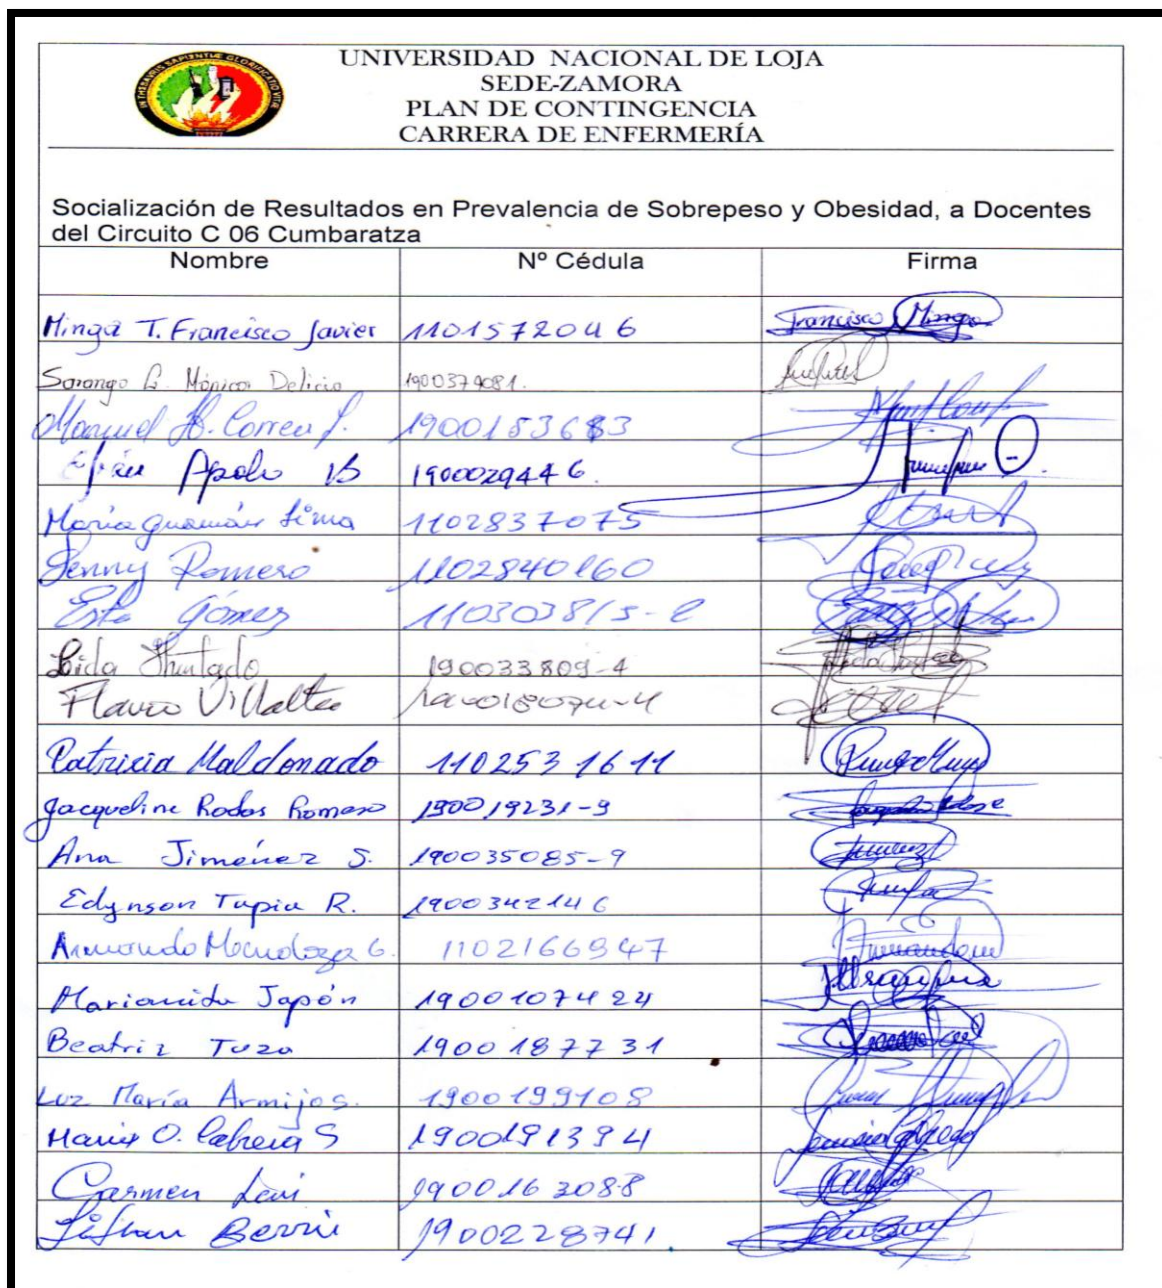 IN THESAURIS SAPIENTIAE GLORIFICATIO VITAE
UNIVERSIDAD NACIONAL DE LOJA
SEDE-ZAMORA
PLAN DE CONTINGENCIA
CARRERA DE ENFERMERÍA
Socialización de Resultados en Prevalencia de Sobrepeso y Obesidad, a Docentes
del Circuito C 06 Cumbaratza
Nombre Nº Cédula Firma
Minga T. Francisco Javier 1101572046 Francisco Minga
Sarango G. Mónica Delicia
Manuel H. Correa J. 1900153683
Efrén Apolo B 190002944 6.
María Guamán Lima 1102837075
Jenny Romero 1102840160
Gómez
Lida Hurtado 190033809-4
Flavio Villalta
Patricia Maldonado 1102531611
Jacqueline Rodas Romero 190019231-9
Ana Jiménez S. 190035085-9
Edynson Tapia R. 1900342146
Armando Mendoza G. 1102166947
Japón 1900107424
Beatriz Tuza 1900187731
Luz María Armijos. 1900199108
María O. Cabrera S
Carmen 1900163088
Berrú 1900228741.